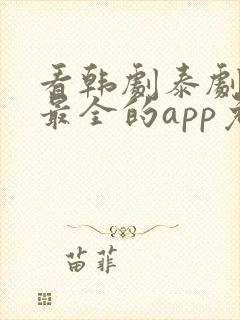 看韩剧泰剧
最全的app
苗菲